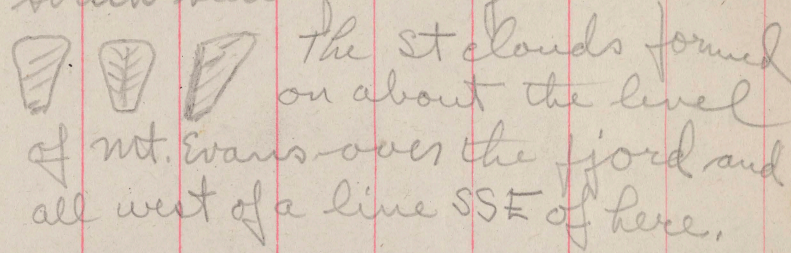 The St clouds formed
on about the level
of Mt. Evans over the fjord and
all west of a line SSE of here.